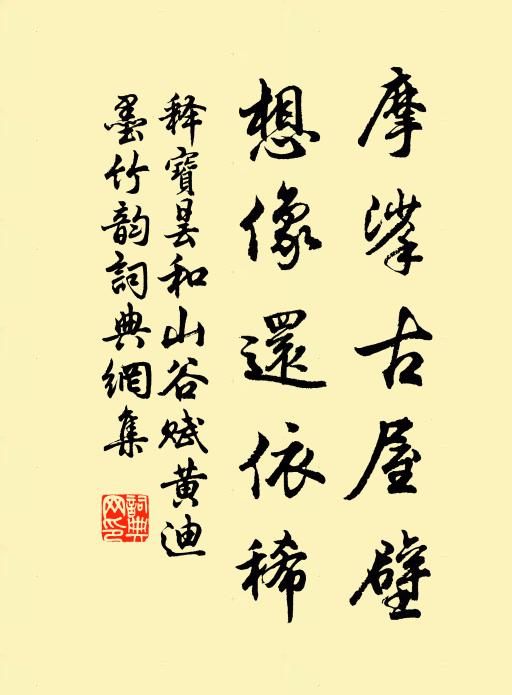 摩挲古屋壁
想像還依稀
释寶曇和山谷赋黄迪
墨竹韵詞典網集
詞典網印